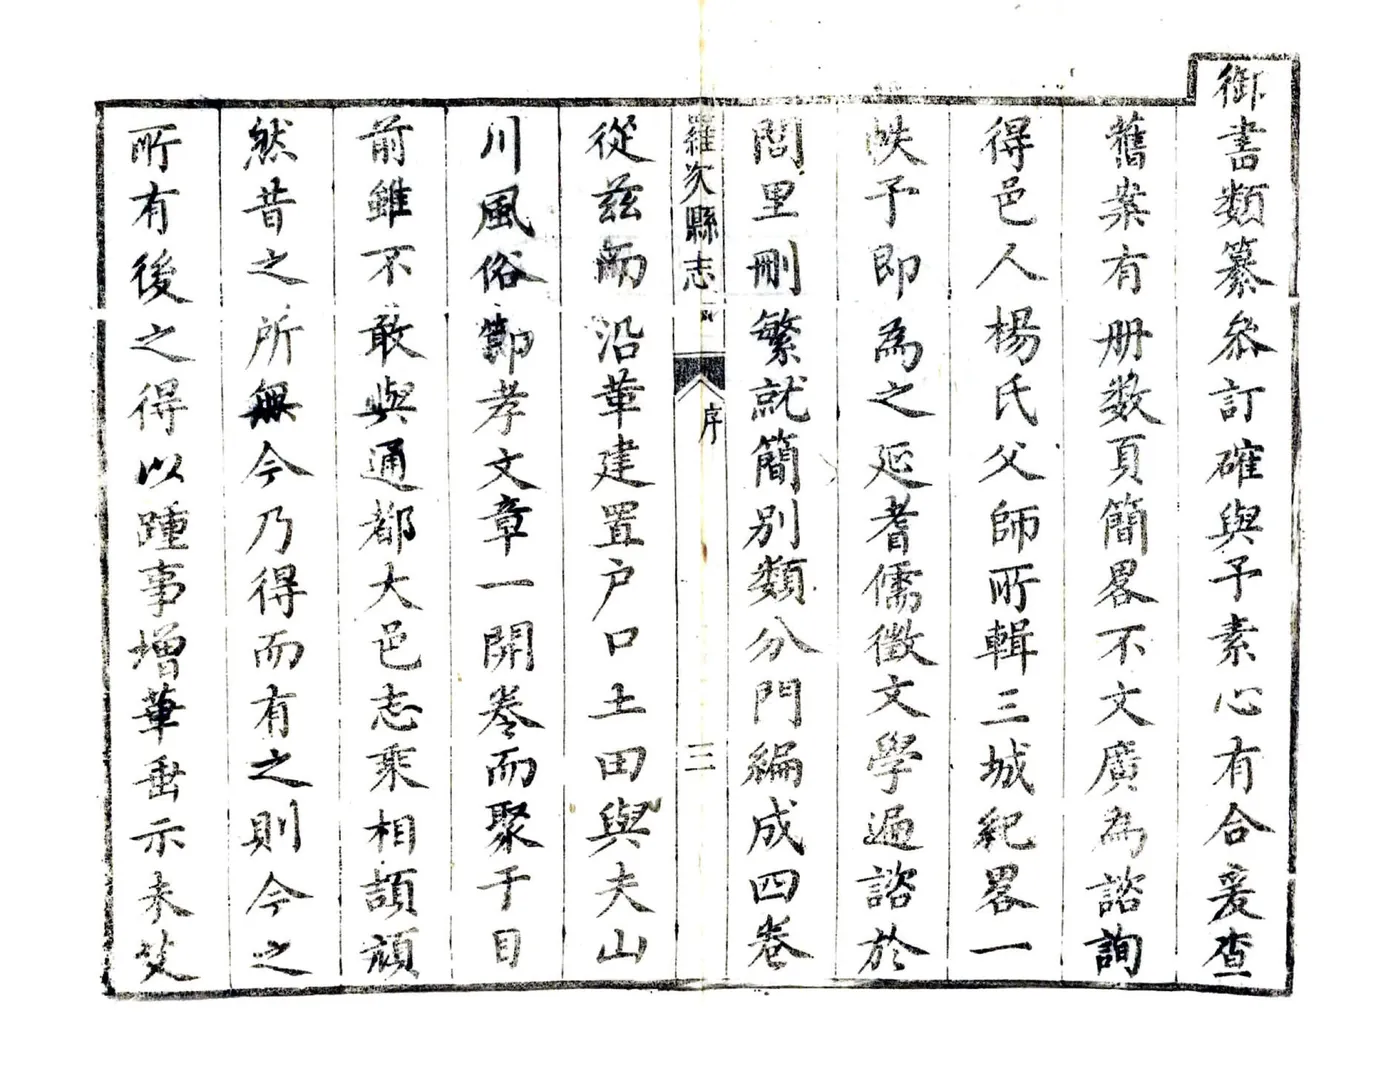 御書類纂叅訂確與予素心有合爰查
舊案有册数頁簡畧不文廣為諮詢
得邑人楊氏父師所輯三城紀畧一
帙予即為之延耆儒徵文學遍諮於
閭里刪繁就簡別類分門編成四卷
羅次縣志
序
三
從茲而沿革建置户口土田與夫山
川風俗節孝文章一開卷而聚于目
前雖不敢與通都大邑志乘相頡頏
然昔之所無今乃得而有之則今之
所有後之得以踵事增華垂示未艾